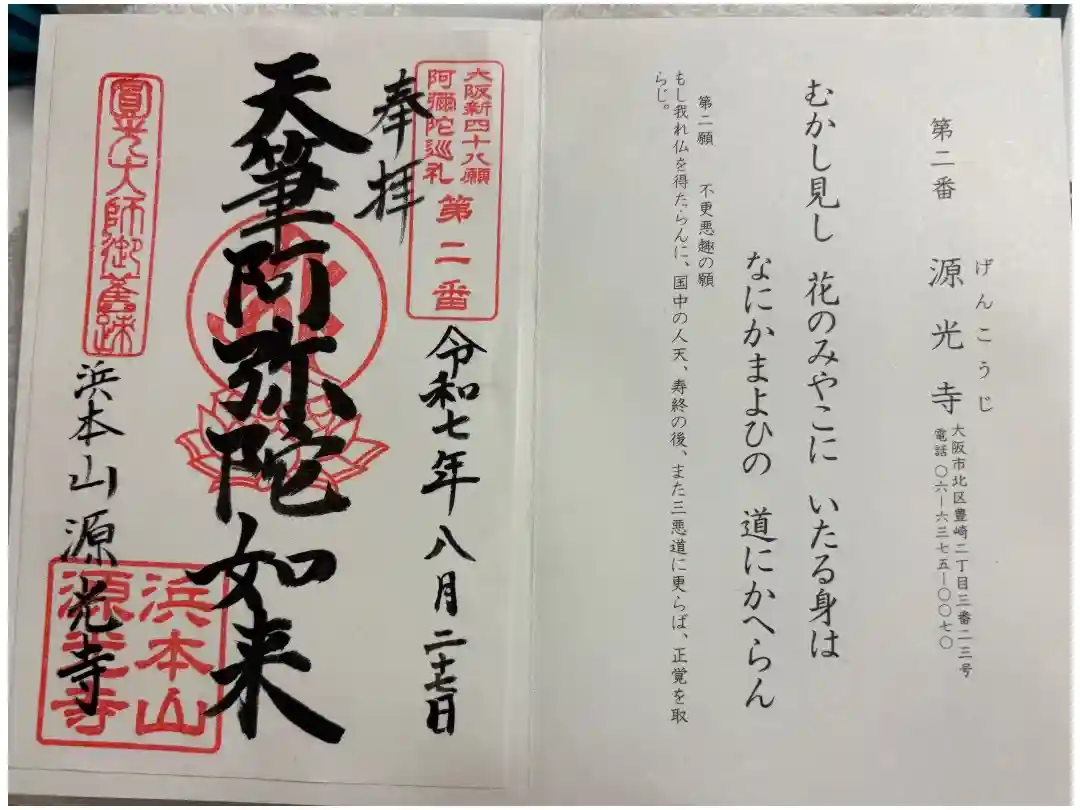 第二番
源光寺
げんこうじ
大阪市北区豊崎二丁目三番二三号
電話〇六ー六三七五ー〇〇七〇
むかし見し 花のみやこに いたる身は
なにかまよひの 道にかへらん
第二願 不更悪趣の願
もし我れ仏を得たらんに、国中の人天、寿終の後、また三悪道に更らば、正覚を取
らじ。
大阪新四十八願
阿彌陀巡礼
第二番
奉拝
令和七年八月二十七日
天筆阿弥陀如来
圓光大師御舊跡
浜本山源光寺
浜本山
源光寺